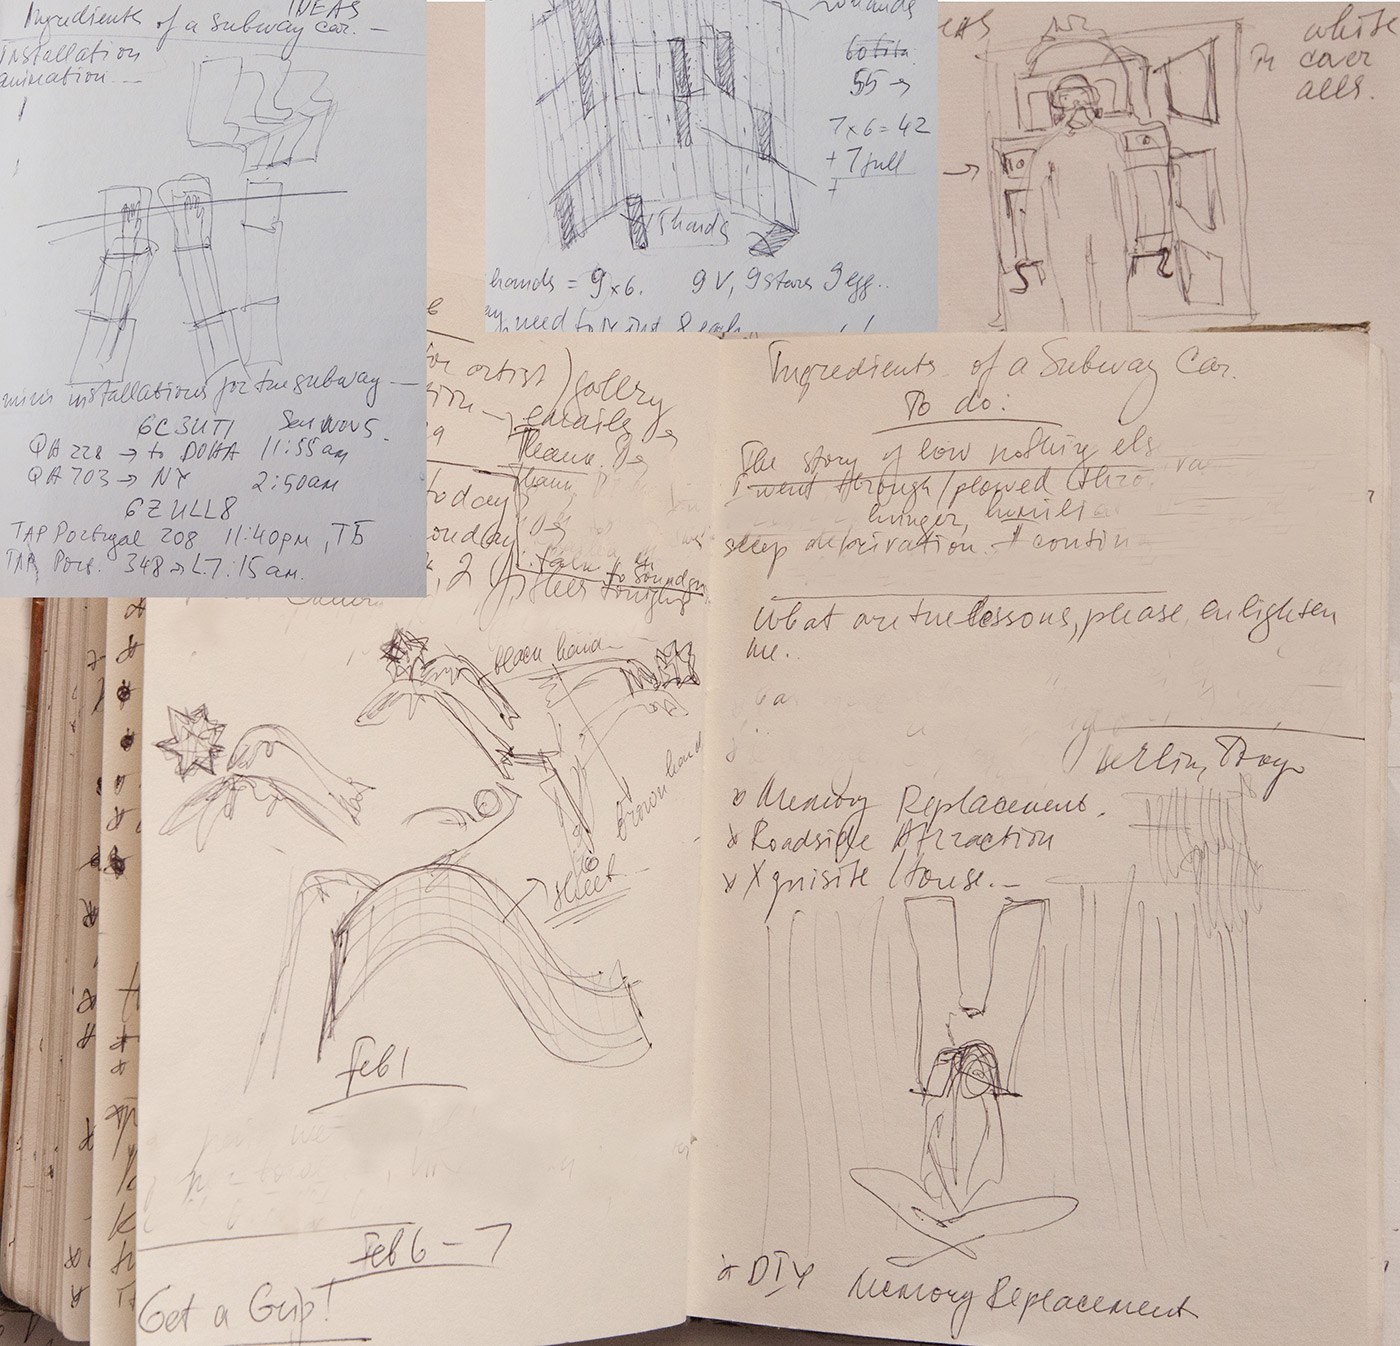 IDEAS
Ingredients of a Subway car. —
Installation
animation...
mini installations for the subway —
6C3UTI
QA 228 → to DOHA 11:55am
QA 703 → NY 2:50am
6ZULL8
TAP Portugal 208 11:40pm, TБ
TAP Port. 348 → L7:15am.
55 →
7x6=42
+ 7 full
hands
hands = 9x6. 9V, 9 stars 9 egg..
need to print 8 each
white
cover
alls.
for artist) gallery
emails
today
Monday
talk to
black hand
brown hand
select
Feb 1
Feb 6 – 7
Get a Grip!
Ingredients of a Subway Car.
To do:
The story of how nothing els
I went through / plowed thro
hunger, humili
sleep deprivation. I contin
What are the lessons, please, enlighten
me.
Berlin,
Memory Replacement.
Roadside Attraction
Xquisite House. –
DIY Memory Replacement